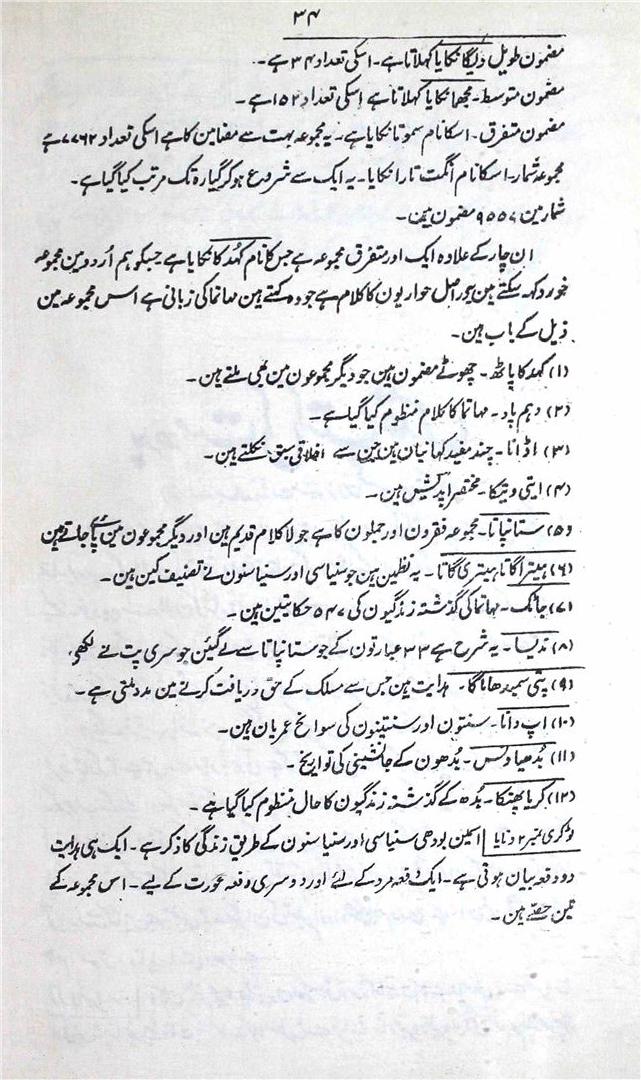 ۳۴
مضمون طویل دیگانکایا کہلاتا ہے۔ اسکی تعداد ۳۴ ہے۔
مضمون متوسط۔ مجھانکایا کہلاتا ہے اسکی تعداد ۱۵۲ ہے۔
مضمون متفرق۔ اسکا نام سموتانکایا ہے۔ یہ مجموعہ بہت سے مضامین کا ہے اسکی تعداد ۷۷۶۲ ہے
مجموعہ شمار۔ اسکا نام انگت تارا نکایا۔ یہ ایک سے شروع ہوکر گیارہ تک مرتب کیا گیا ہے۔
شمار مین ۹۵۵۷ مضمون ہین۔
ان چار کے علاوہ ایک اور متفرق مجموعہ ہے جس کا نام کُھدکانکایا ہے جسکو ہم اُردو مین مجموعہ
خورد کہہ سکتے ہین یہ دراصل حواریون کا کلام ہے جو وہ کہتے ہین مہاتما کی زبانی ہے اس مجموعہ مین
ذیل کے باب ہین۔
(۱) کھدکاپاٹھ۔ چھوٹے مضمون ہین جو دیگر مجموعون مین بھی ملتے ہین۔
(۲) دہم پاد۔ مہاتما کا کلام منظوم کیا گیا ہے۔
(۳) اڈانا۔ چند مفید کہانیان ہین جن سے اخلاقی سبق نکلتے ہین۔
(۴) ایتی ویتکا۔ مختصر اپدیش ہین۔
(۵) ستانپاتا۔ مجموعہ فقرون اور جملون کا ہے جو لاکلام قدیم ہین اور دیگر مجموعون مین پائے جاتے ہین
(۶) ہیتراگاتا ہیتری گاتا۔ یہ نظمین ہین جو سنیاسی اور سنیاسنون نے تصنیف کین ہین۔
(۷) جاتک۔ مہاتما کی گذشتہ زندگیون کی ۵۴۷ حکایتین ہین۔
(۸) ندیسا۔ یہ شرح ہے ۳۳ عبارتون کے جو ستانپاتا سے لے گیئن جو سری پت نے لکھی،
(۹) پتی سمبدھاماگا۔ ہدایت ہین جس سے مسلک کے حق دریافت کرنے مین مدد ملتی ہے۔
(۱۰) اپ دانا۔ سنتون اور سنتینون کی سوانح عمریان ہین۔
(۱۱) بُدھیا ونس۔ بُدھون کے جانشینی کی تواریخ۔
(۱۲) کریا پھتکا۔ بدھ کے گذشتہ زندگیون کا حال منظوم کیا گیا ہے۔
ٹوکری نمبر ۲ دنایا اسکین بودھی سنیاسی اور سنیاسنون کے طریق زندگی کا ذکر ہے۔ ایک ہی ہدایت
دو دفعہ بیان ہوتی ہے۔ ایک دفعہ مرد کے لئے اور دوسری دفعہ عورت کے لیے۔ اس مجموعہ کے
تین حصّے ہین۔